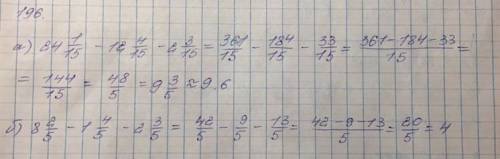 196.
а) 24 1/15 - 12 4/15 - 2 3/15 = 361/15 - 184/15 - 33/15 = (361-184-33)/15 =
= 144/15 = 48/5 = 9 3/5 ≈ 9.6
б) 8 2/5 - 1 4/5 - 2 3/5 = 42/5 - 9/5 - 13/5 = (42-9-13)/5 = 20/5 = 4